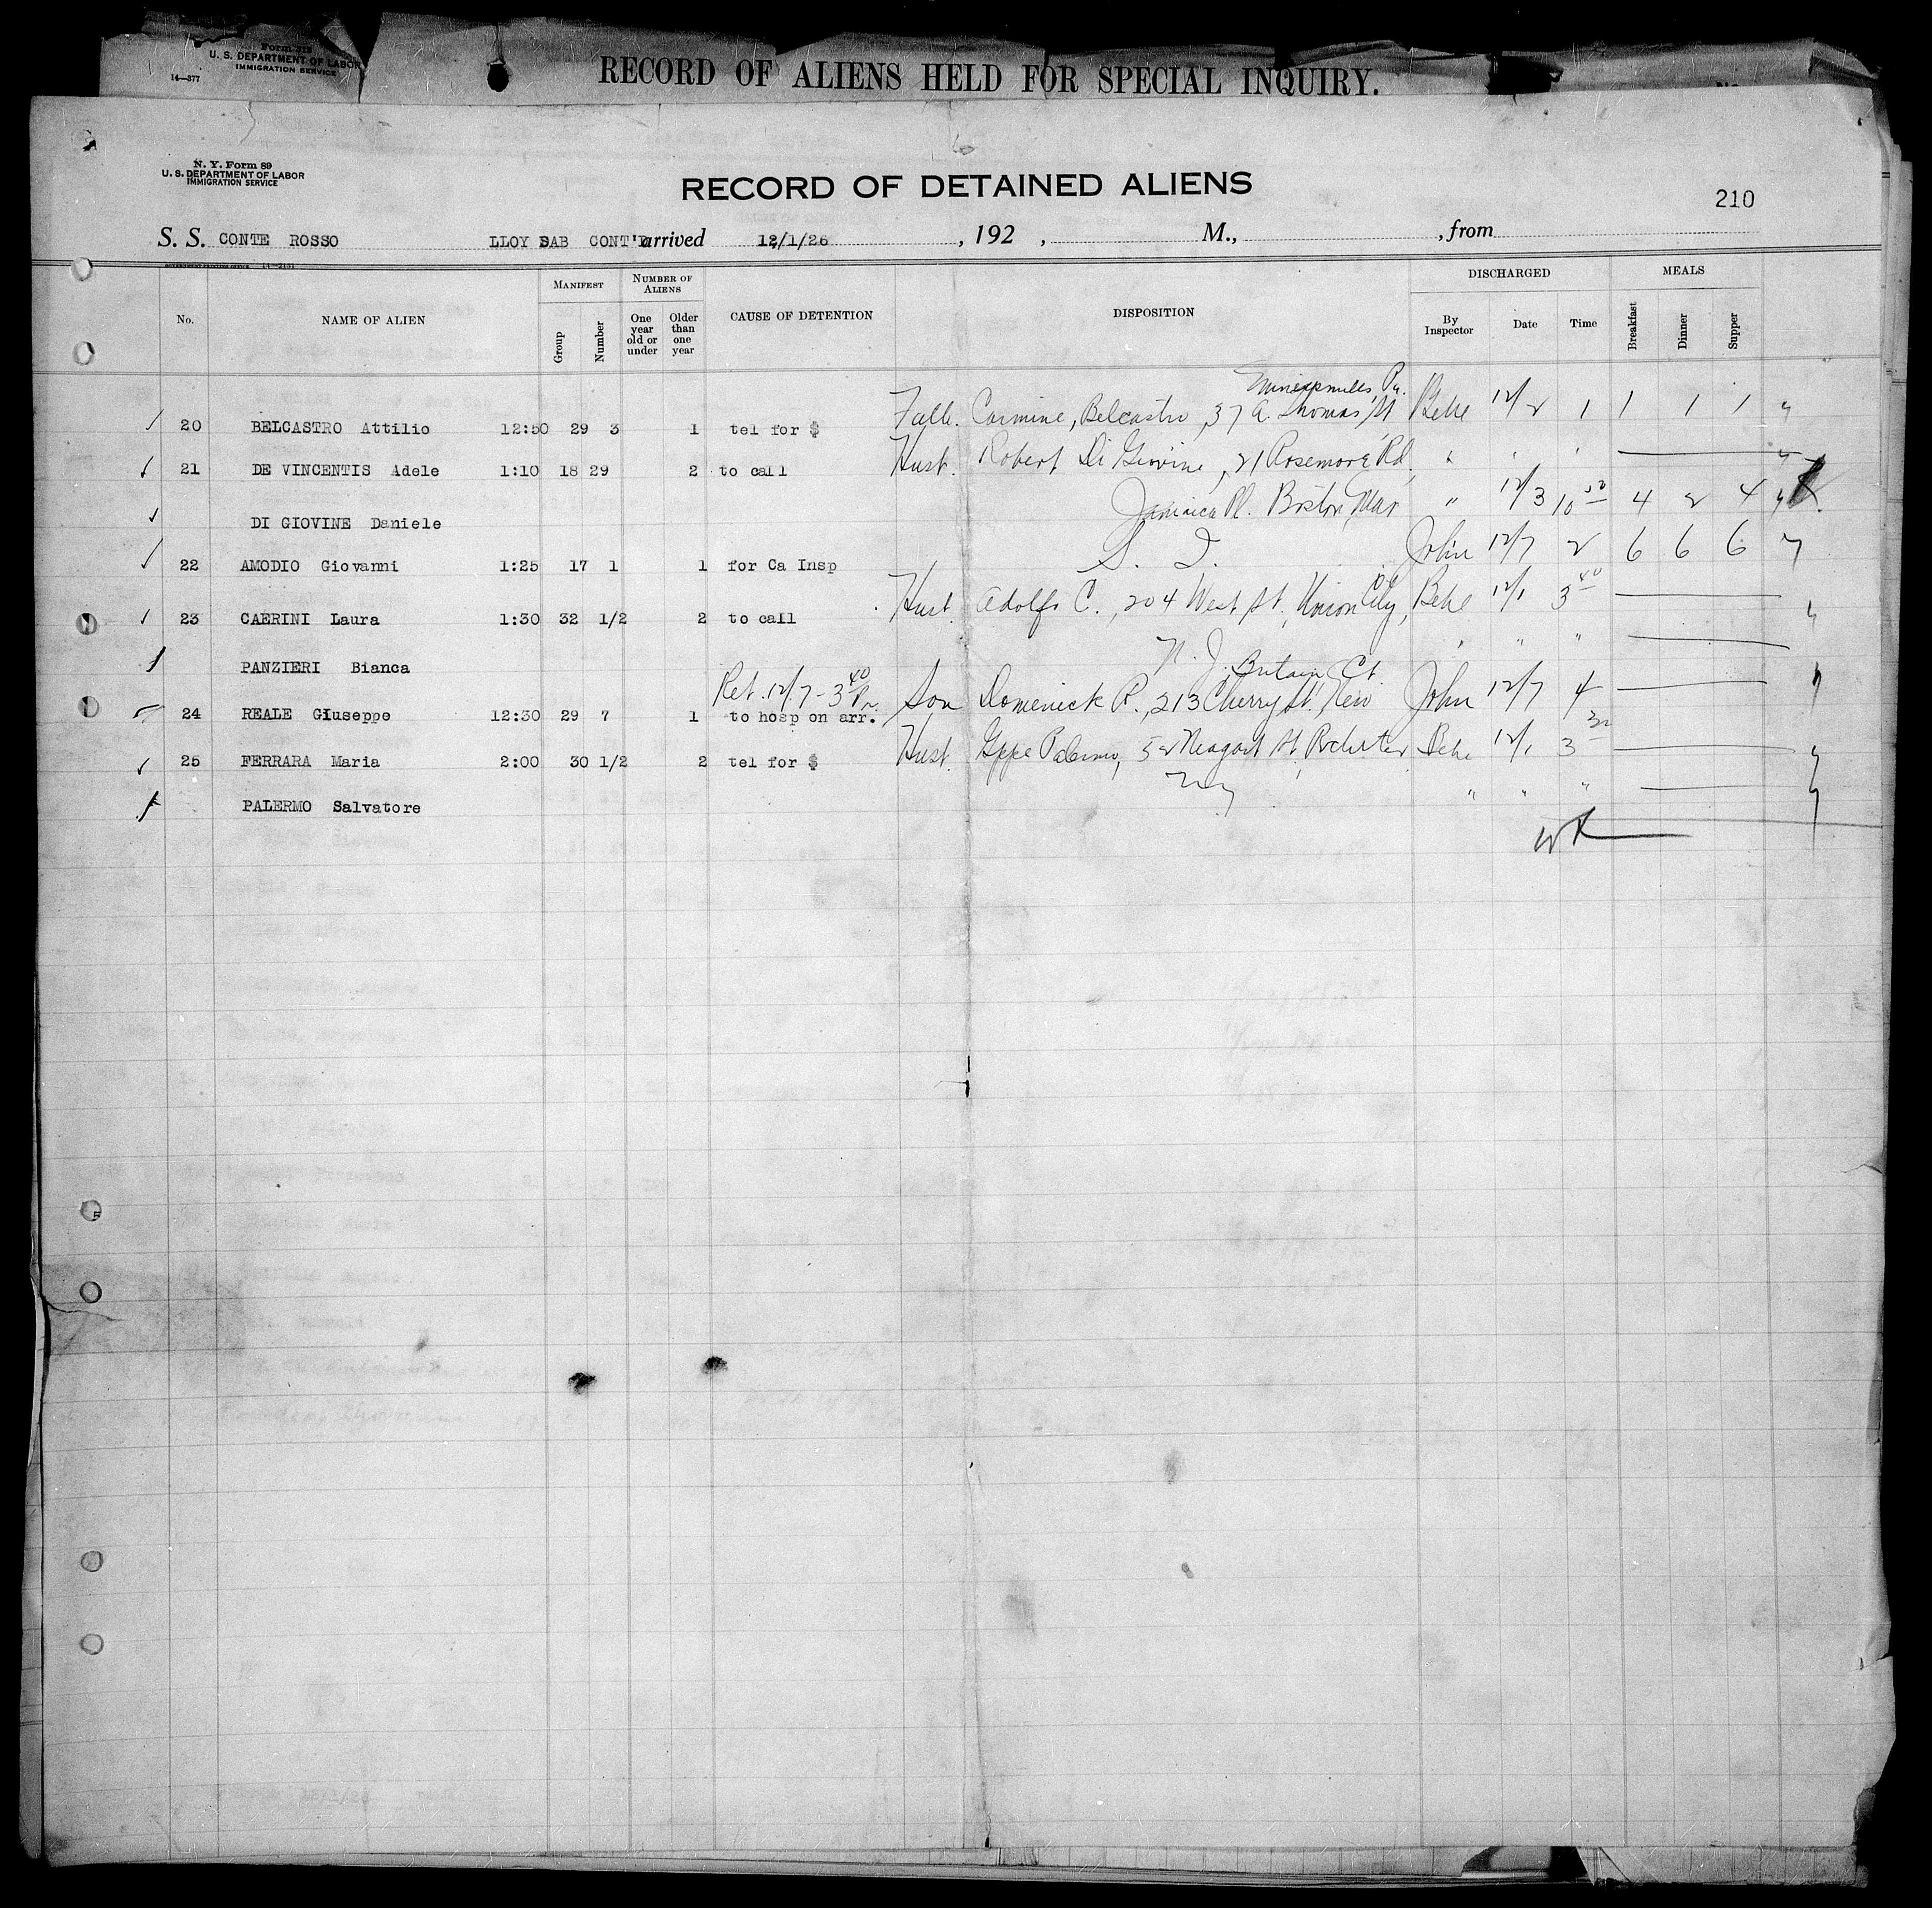 Form 318
U. S. DEPARTMENT OF LABOR
IMMIGRATION SERVICE
14—377
RECORD OF ALIENS HELD FOR SPECIAL INQUIRY.
No.
N. Y. Form 89
U. S. DEPARTMENT OF LABOR
IMMIGRATION SERVICE
RECORD OF DETAINED ALIENS
210
S. S. CONTE ROSSO LLOY SAB CONT'D arrived 12/1/26 , 192 , M., , from
No. NAME OF ALIEN MANIFEST Group Number NUMBER OF ALIENS One year old or under Older than one year CAUSE OF DETENTION DISPOSITION DISCHARGED By Inspector Date Time MEALS Breakfast Dinner Supper
Pa.
20 BELCASTRO Attilio 12:50 29 3 1 tel for $ Fath. Carmine, Belcastro, 37 St 12/2 1 1 1 1
21 DE VINCENTIS Adele 1:10 18 29 2 to call Hust. Robert Di Giovine, 21 Rosemore Rd, " " "
DI GIOVINE Daniele Jamaica Pl. Boston Mas " 12/3 10 4 2 4
22 AMODIO Giovanni 1:25 17 1 1 for Ca Insp S. I. John 12/7 2 6 6 6
23 CAERINI Laura 1:30 32 1/2 2 to call Hust Adolfo C., 204 West St, Union City, 12/1 3 40
PANZIERI Bianca N. J. " " "
Ret. 12/7 - 3 40 Pm. Britain Ct.
24 REALE Giuseppe 12:30 29 7 1 to hosp on arr. Son Domenick R., 213 Cherry St. New John 12/7 4
25 FERRARA Maria 2:00 30 1/2 2 tel for $ Hust. Gppe Palermo, 52 St, Rochester 12/1 3
PALERMO Salvatore NY " " "